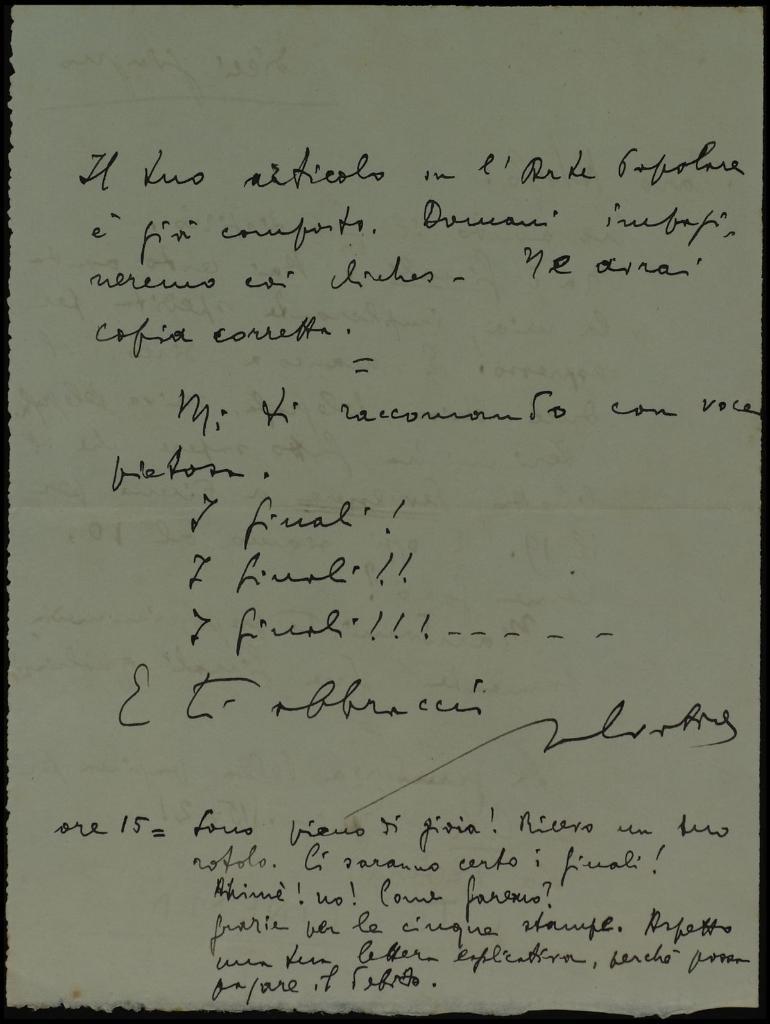 Il tuo articolo su l'Arte Popolare
è già composto. Domani impagi-
neremo coi cliches - Ne avrai
copia corretta.
=
Mi ti raccomando con voce
pietosa.
I finali!
I finali!!
I finali!!! - - - - -
E ti abbraccio
ore 15 = Sono pieno di gioia! Ricevo un tuo
rotolo. Ci saranno certo i finali!
Ahimè! no! Come faremo?
Grazie per le cinque stampe. Aspetto
una tua lettera esplicativa, perchè possa
pagare il debito.